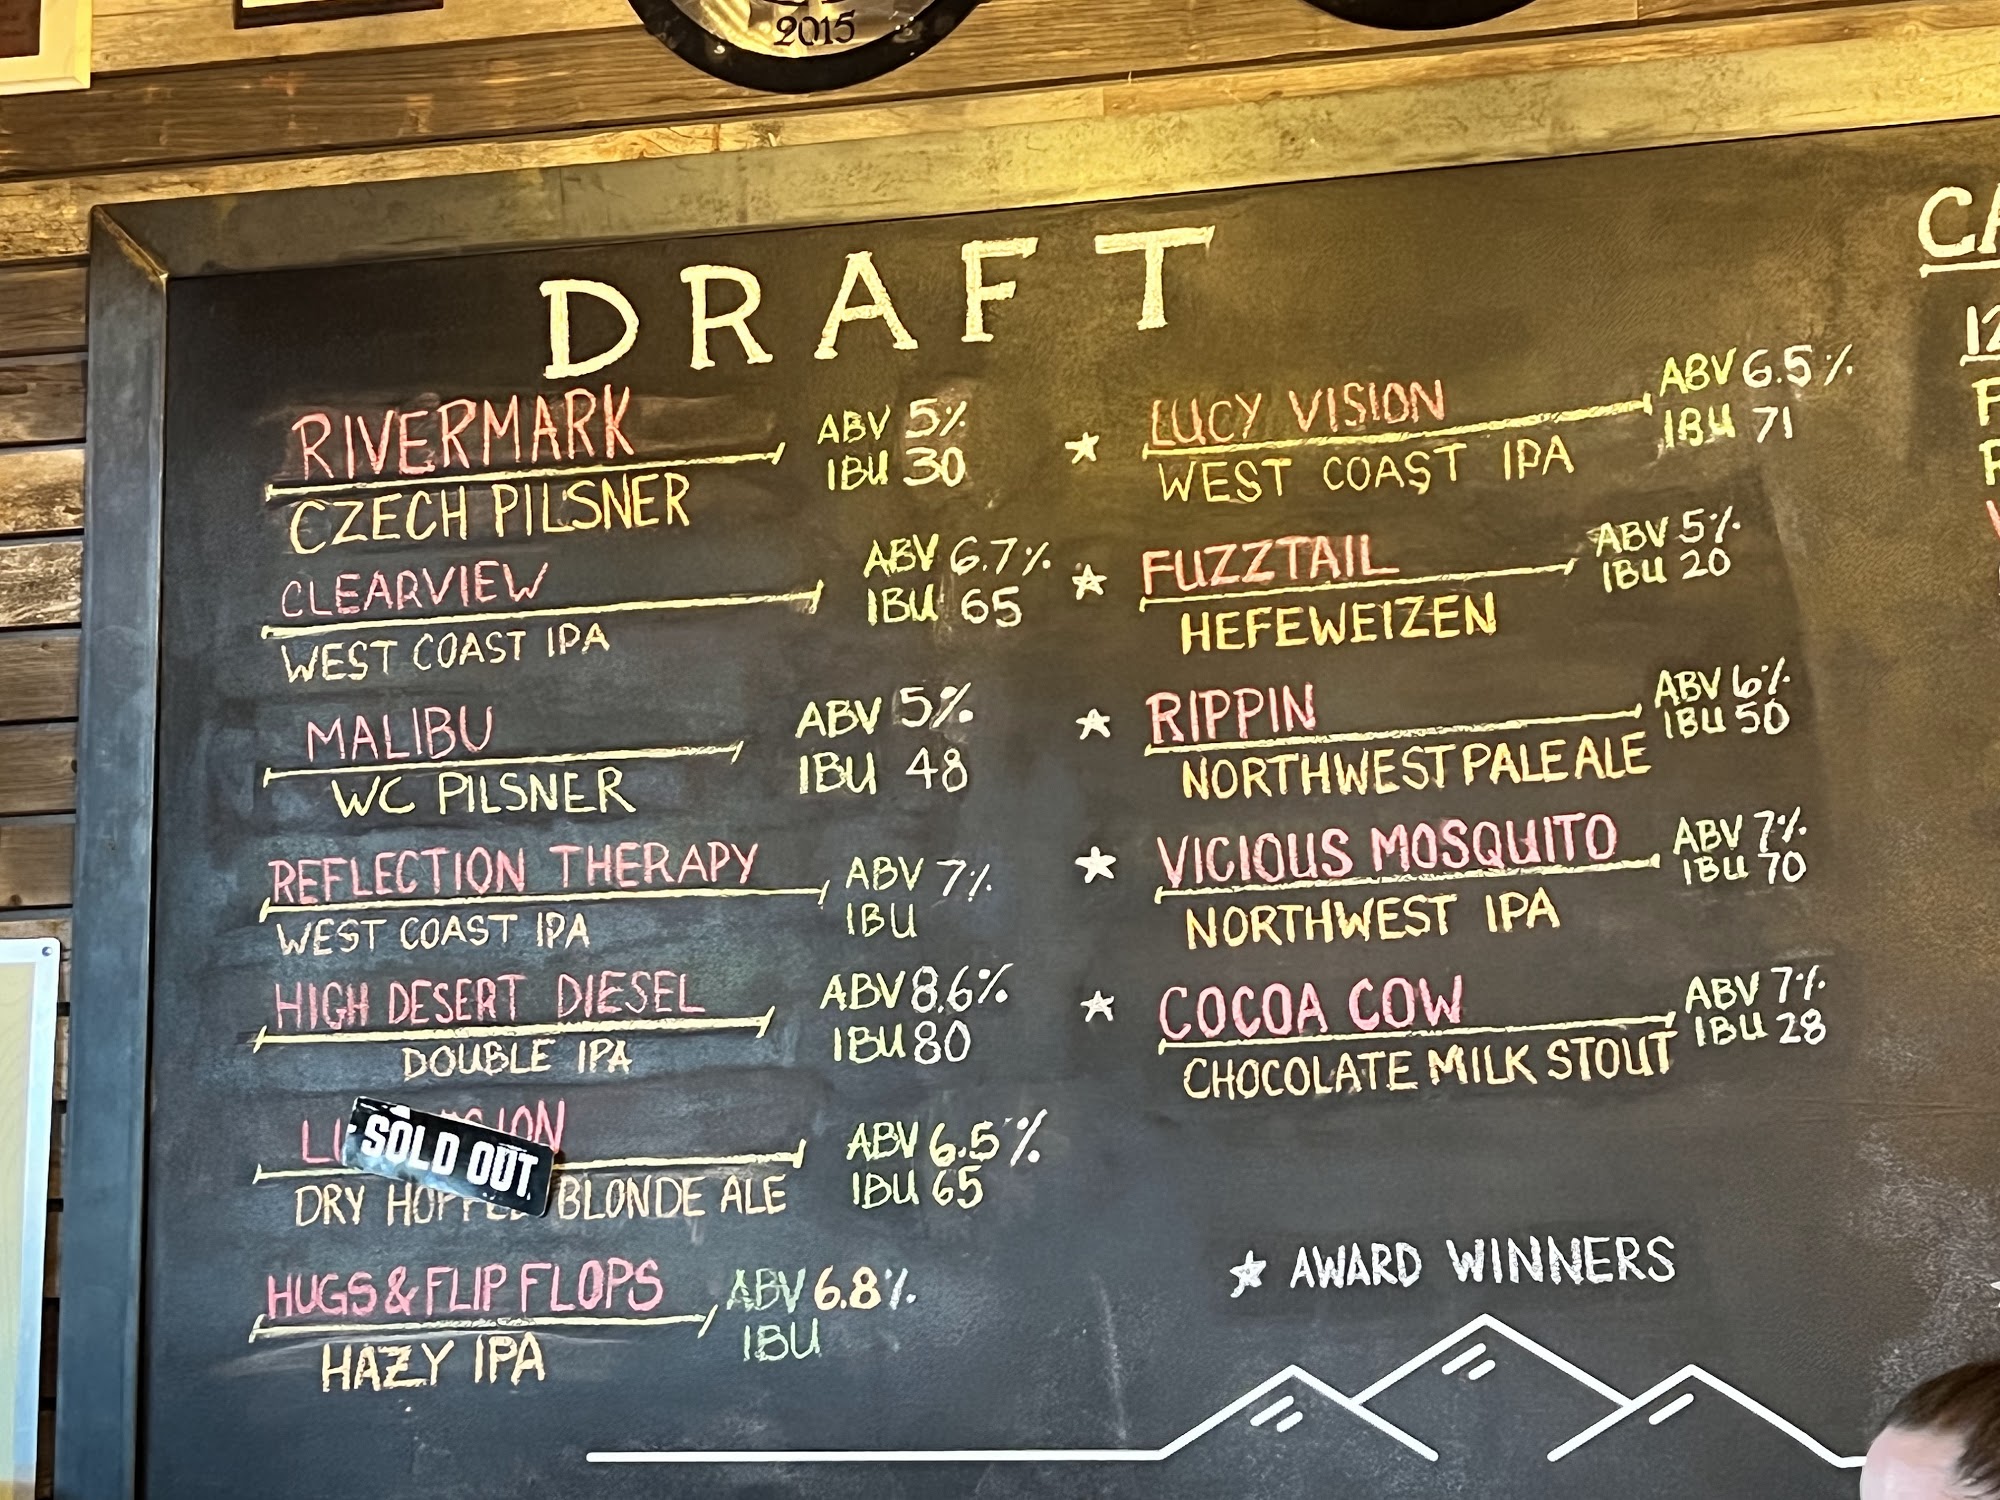 2015
DRAFT
RIVERMARK
ABV 5%
IBU 30
CZECH PILSNER
CLEARVIEW
ABV 6.7%
IBU 65
WEST COAST IPA
MALIBU
ABV 5%
IBU 48
WC PILSNER
REFLECTION THERAPY
ABV 7%
IBU
WEST COAST IPA
HIGH DESERT DIESEL
ABV 8.6%
IBU 80
DOUBLE IPA
SOLD OUT
ABV 6.5%
IBU 65
DRY HOPPED BLONDE ALE
HUGS & FLIP FLOPS
ABV 6.8%
IBU
HAZY IPA
LUCY VISION
ABV 6.5%
IBU 71
WEST COAST IPA
FUZZTAIL
ABV 5%
IBU 20
HEFEWEIZEN
RIPPIN
ABV 6%
IBU 50
NORTHWEST PALE ALE
VICIOUS MOSQUITO
ABV 7%
IBU 70
NORTHWEST IPA
COCOA COW
ABV 7%
IBU 28
CHOCOLATE MILK STOUT
AWARD WINNERS
12